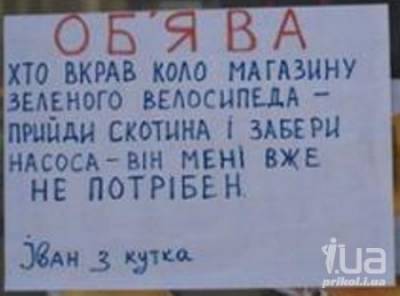 ОБ'ЯВА
ХТО ВКРАВ КОЛО МАГАЗИНУ
ЗЕЛЕНОГО ВЕЛОСИПЕДА –
ПРИЙДИ СКОТИНА І ЗАБЕРИ
НАСОСА – ВІН МЕНІ ВЖЕ
НЕ ПОТРІБЕН.
Іван з кутка
i.ua
prikol.i.ua